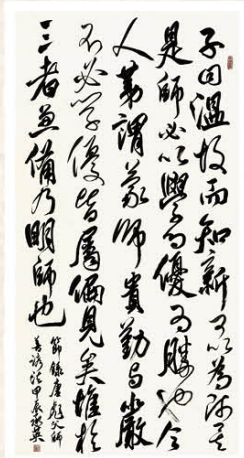 子曰溫故而知新可以為師矣
是師必以學問優為勝也今
人莫謂蒙師貴勤與嚴
不必學優皆屬偏見矣惟於
三者兼備乃明師也
節錄唐彪父師
善誘法甲辰